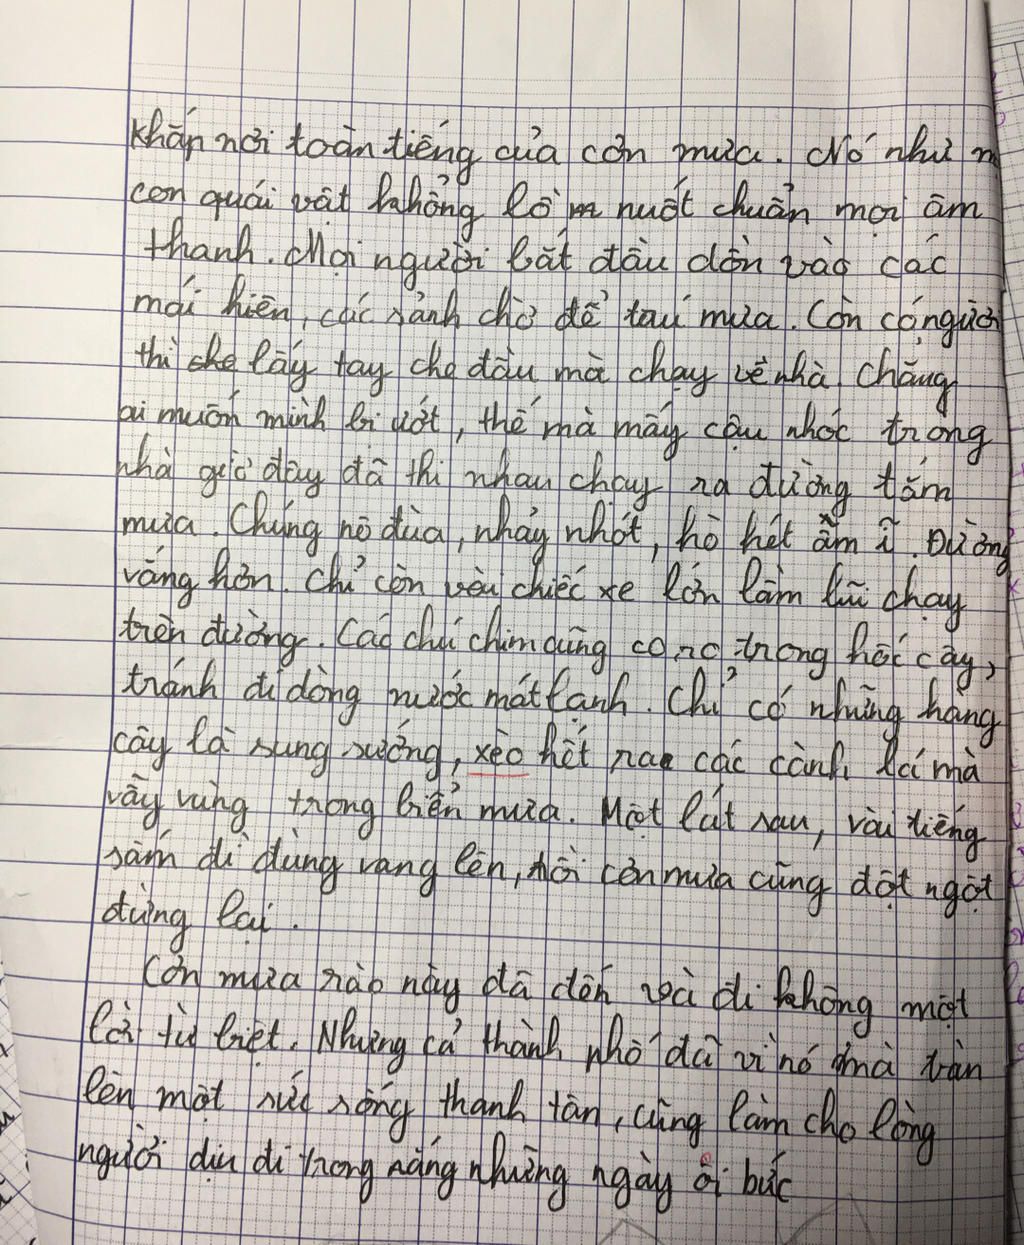 khắp nơi toàn tiếng của cơn mưa. Nó như
con quái vật khổng lồ nuốt chuẩn mọi âm
thanh. Mọi người bắt đầu dồn vào các
mái hiên, các sảnh chờ để taú mưa. Còn có người
thì che lấy tay che đầu mà chạy về nhà. Chẳng
ai muốn mình bị ướt, thế mà mấy cậu nhóc trong
nhà giờ đây đã thi nhau chạy ra đường tắm
mưa. Chúng nô đùa, nhảy nhót, hò hét ầm ĩ. Đường
vắng hơn. Chỉ còn vài chiếc xe lớn lầm lũi chạy
trên đường. Các chú chim cũng co ro trong hốc cây,
tránh đi dòng nước mát lạnh. Chỉ có những hàng
cây là sung sướng, xèo hết ra các cành lá mà
vẫy vùng trong biển mưa. Một lát sau, vài tiếng
sấm đì đùng vang lên, rồi cơn mưa cũng đột ngột
dừng lại.
Cơn mưa rào này đã đến và đi không một
lời từ biệt. Nhưng cả thành phố đã vì nó mà tràn
lên một sức sống thanh tân, cũng làm cho lòng
người dịu đi trong nắng những ngày ôi bức